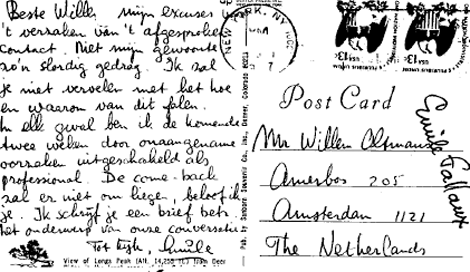 Beste Willem, mijn excuses voor
't verzaken van 't afgesproken
contact. Niet mijn gewoonte
zo'n slordig gedrag. Ik zal
je niet vervelen met het hoe
en waarom van dit falen.
In elk geval ben ik de komende
twee weken door onaangename
oorzaken uitgeschakeld als
professional. De come-back
zal er niet om liegen, beloof ik
je. Ik schrijf je een brief betr.
het onderwerp van onze conversatie
Tot kijk, Emile
View of Longs Peak (Alt. 14,255 ft.) from Deer
Pub. by Sanborn Souvenir Co., Inc., Denver, Colorado
NEW YORK, NY
USA 13c
USA 13c
Post Card
Mr Willem Oltmans
Amerbos 205
Amsterdam 1121
The Netherlands
Emile Fallaux